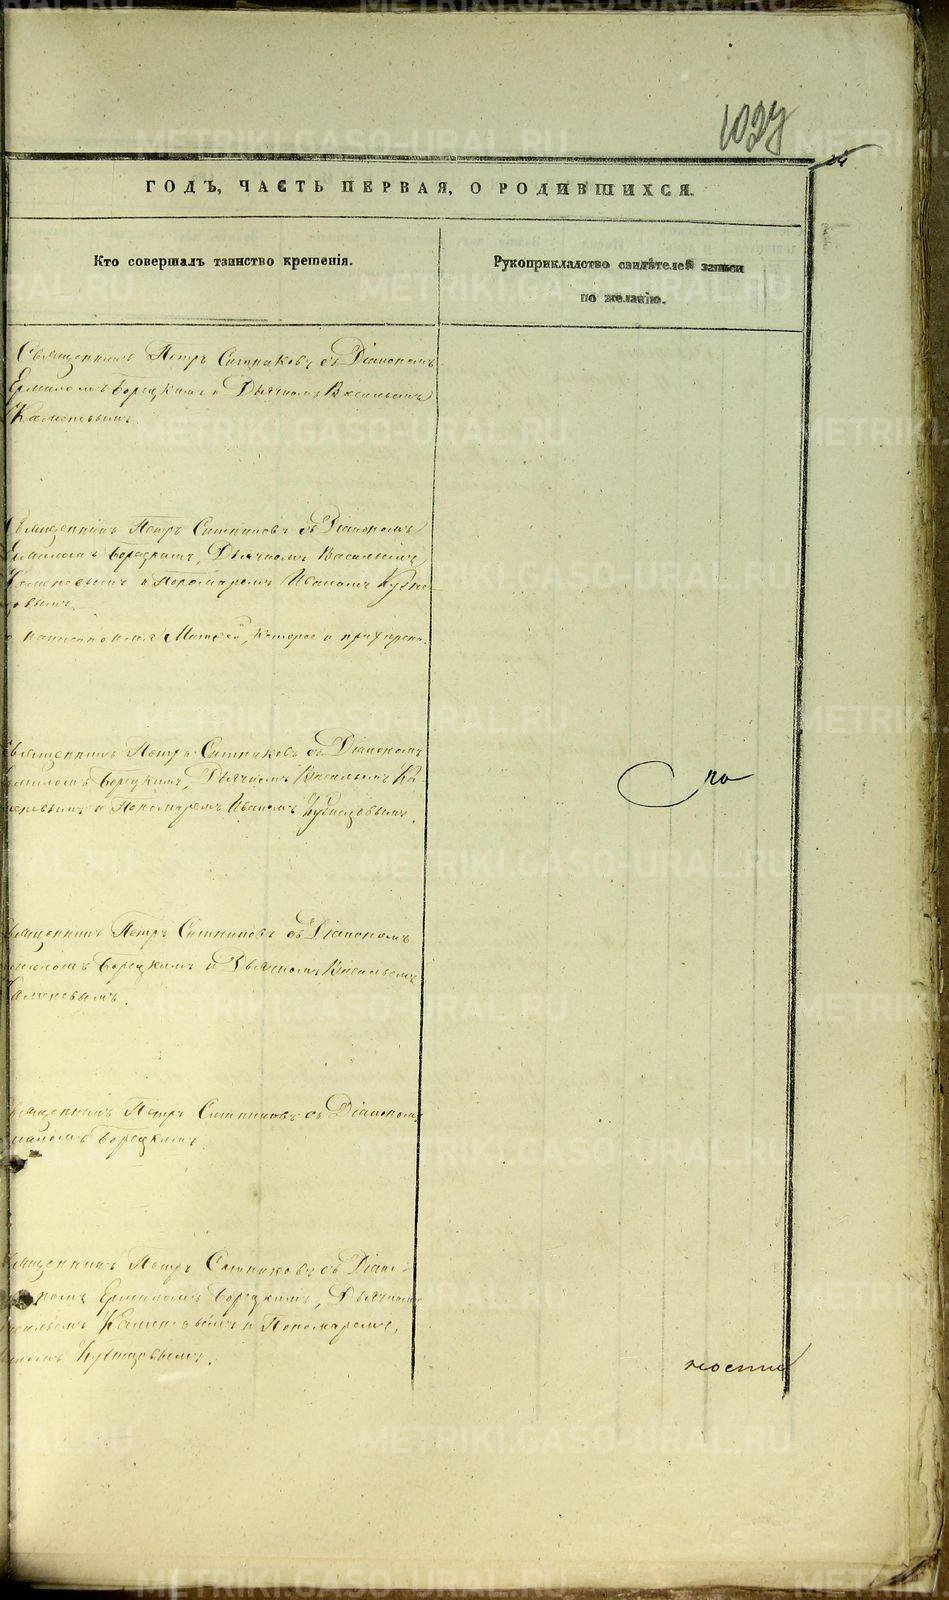 1027
24
ГОДЪ, ЧАСТЬ ПЕРВАЯ, О РОДИВШИХСЯ.
Кто совершалъ таинство крещенія.
Рукоприкладство свидѣтелей записи
по желанію.
Священникъ Петръ Ситниковъ съ Діакономъ
Ермиломъ Борецкимъ и Дьячкомъ Васильемъ
Каменевымъ.
Священникъ Петръ Ситниковъ съ Діакономъ
Ермиломъ Борецкимъ, Дьячкомъ Васильемъ
Каменевымъ и Пономаремъ Иваномъ Кузне-
цовымъ.
Матвей, которое и
Священникъ Петръ Ситниковъ съ Діакономъ
Ермиломъ Борецкимъ, Дьячкомъ Васильемъ Ка
меневымъ и Пономаремъ Иваномъ Кузнецовымъ.
по
Священникъ Петръ Ситниковъ съ Діакономъ
Ермиломъ Борецкимъ и Дьячкомъ Васильемъ
Каменевымъ.
Священникъ Петръ Ситниковъ съ Діакономъ
Ермиломъ Борецкимъ.
Священникъ Петръ Ситниковъ съ Діа-
кономъ Ермиломъ Борецкимъ, Дьячкомъ
Васильемъ Каменевымъ и Пономаремъ,
Иваномъ Кузнецовымъ.
METRIKI.GASO-URAL.RU